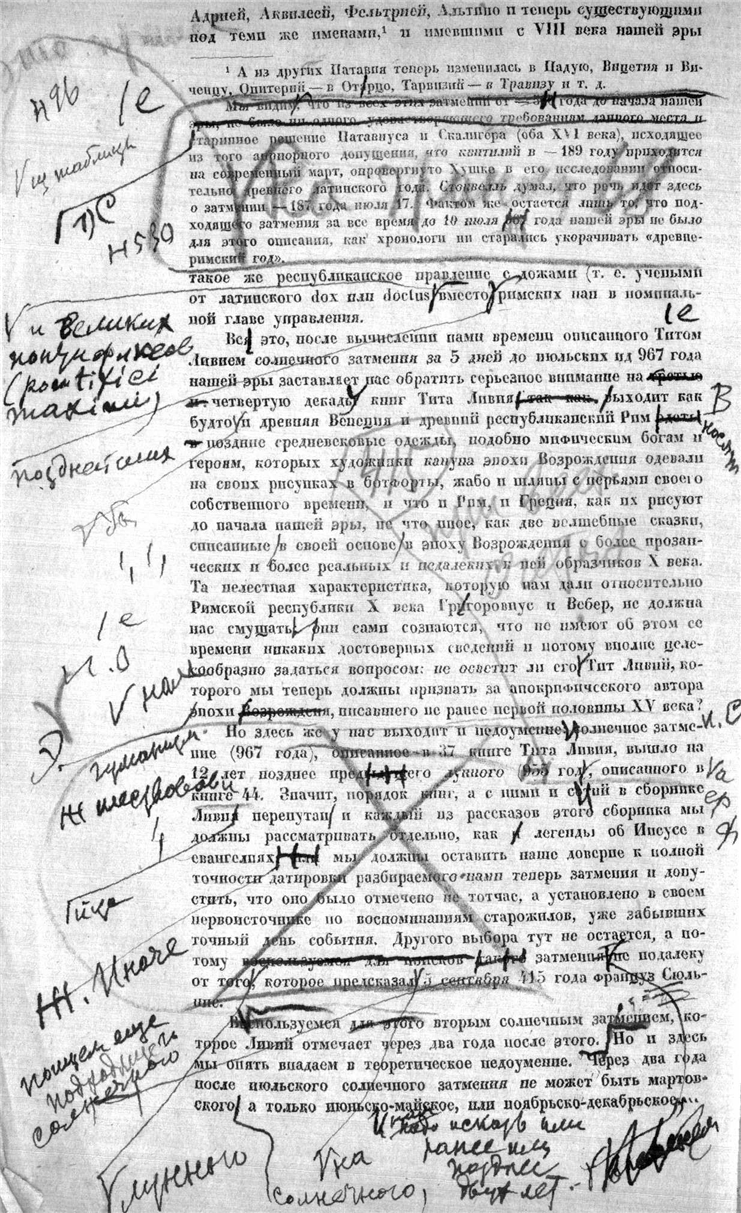 Адрией, Аквилеей, Фельтрией, Альтино и теперь существующими
под теми же именами,¹ и имевшими с VIII века нашей эры
¹ А из других Патавия теперь изменилась в Падую, Вицетия и Ви-
ченцу, Опитерий — в Отерцо, Тарвизий — в Травизу и т. д.
Мы видим, что из всех этих затмений от года до начала нашей
эры, не было ни одного удовлетворяющего требованиям данного места и
старинное решение Петавиуса и Скалигера (оба XVI века), исходящее
из того априорного допущения, что квитилий в —189 году приходится
на современный март, опровергнуто Хушке в его исследовании относи-
тельно древнего латинского года. Стоквелль думал, что речь идет здесь
о затмении —187 года июля 17. Фактом же остается лишь то, что под-
ходящего затмения за все время до 10 июля 967 года нашей эры не было
для этого описания, как хронологи ни старались укорачивать «древне-
римский год».
такое же республиканское правление с дожами (т. е. учеными
от латинского dox или doctus вместо римских пап в номиналь-
ной главе управления.
Все это, после вычислении нами времени описанного Титом
Ливием солнечного затмения за 5 дней до июльских ид 967 года
нашей эры заставляет нас обратить серьезное внимание на третью
и четвертую декады книг Тита Ливия, так как выходит как
будто и древняя Венеция и древний республиканский Рим одеты
в поздние средневековые одежды, подобно мифическим богам и
героям, которых художники кануна эпохи Возрождения одевали
на своих рисунках в ботфорты, жабо и шляпы с перьями своего
собственного времени, и что и Рим, и Греция, как их рисуют
до начала нашей эры, не что иное, как две волшебные сказки,
списанные в своей основе в эпоху Возрождения с более прозаи-
ческих и более реальных и недалеких к ней образчиков X века.
Та нелестная характеристика, которую нам дали относительно
Римской республики X века Григоровиус и Вебер, не должна
нас смущать, они сами сознаются, что не имеют об этом ее
времени никаких достоверных сведений и потому вполне целе-
сообразно задаться вопросом: не осветит ли его Тит Ливий, ко-
торого мы теперь должны признать за апокрифического автора
эпохи Возрождения, писавшего не ранее первой половины XV века?
Но здесь же у нас выходит и недоумение: солнечное затме-
ние (967 года), описанное в 37 книге Тита Ливия, вышло на
12 лет позднее лунного (955 год, описанного в
книге 44. Значит, порядок книг, а с ними и в сборнике
Ливия перепутан и каждый из рассказов этого сборника мы
должны рассматривать отдельно, как и легенды об Иисусе в
евангелиях или мы должны оставить наше доверие к полной
точности датировки разбираемого нами теперь затмения и допу-
стить, что оно было отмечено не тотчас, а установлено в своем
первоисточнике по воспоминаниям старожилов, уже забывших
точный день события. Другого выбора тут не остается, а по-
тому воспользуемся для поисков затмения не подалеку
от того, которое предсказал 3 сентября 415 года француз Сюль-
пис.
Воспользуемся для этого вторым солнечным затмением, ко-
торое Ливий отмечает через два года после этого. Но и здесь
мы опять впадаем в теоретическое недоумение. Через два года
после июльского солнечного затмения не может быть мартов-
ского, а только июньско-майское, или ноябрьско-декабрьское...
н96
/е
картинка
н530
и великих
понтификсов
(pontifici
maximi)
позднейшия
/е
415
В
носят
Иначе
поищем еще
подходящего
солнечного
лунного
на
солнечного,
надо искать или
ранее или
позднее
двух лет.